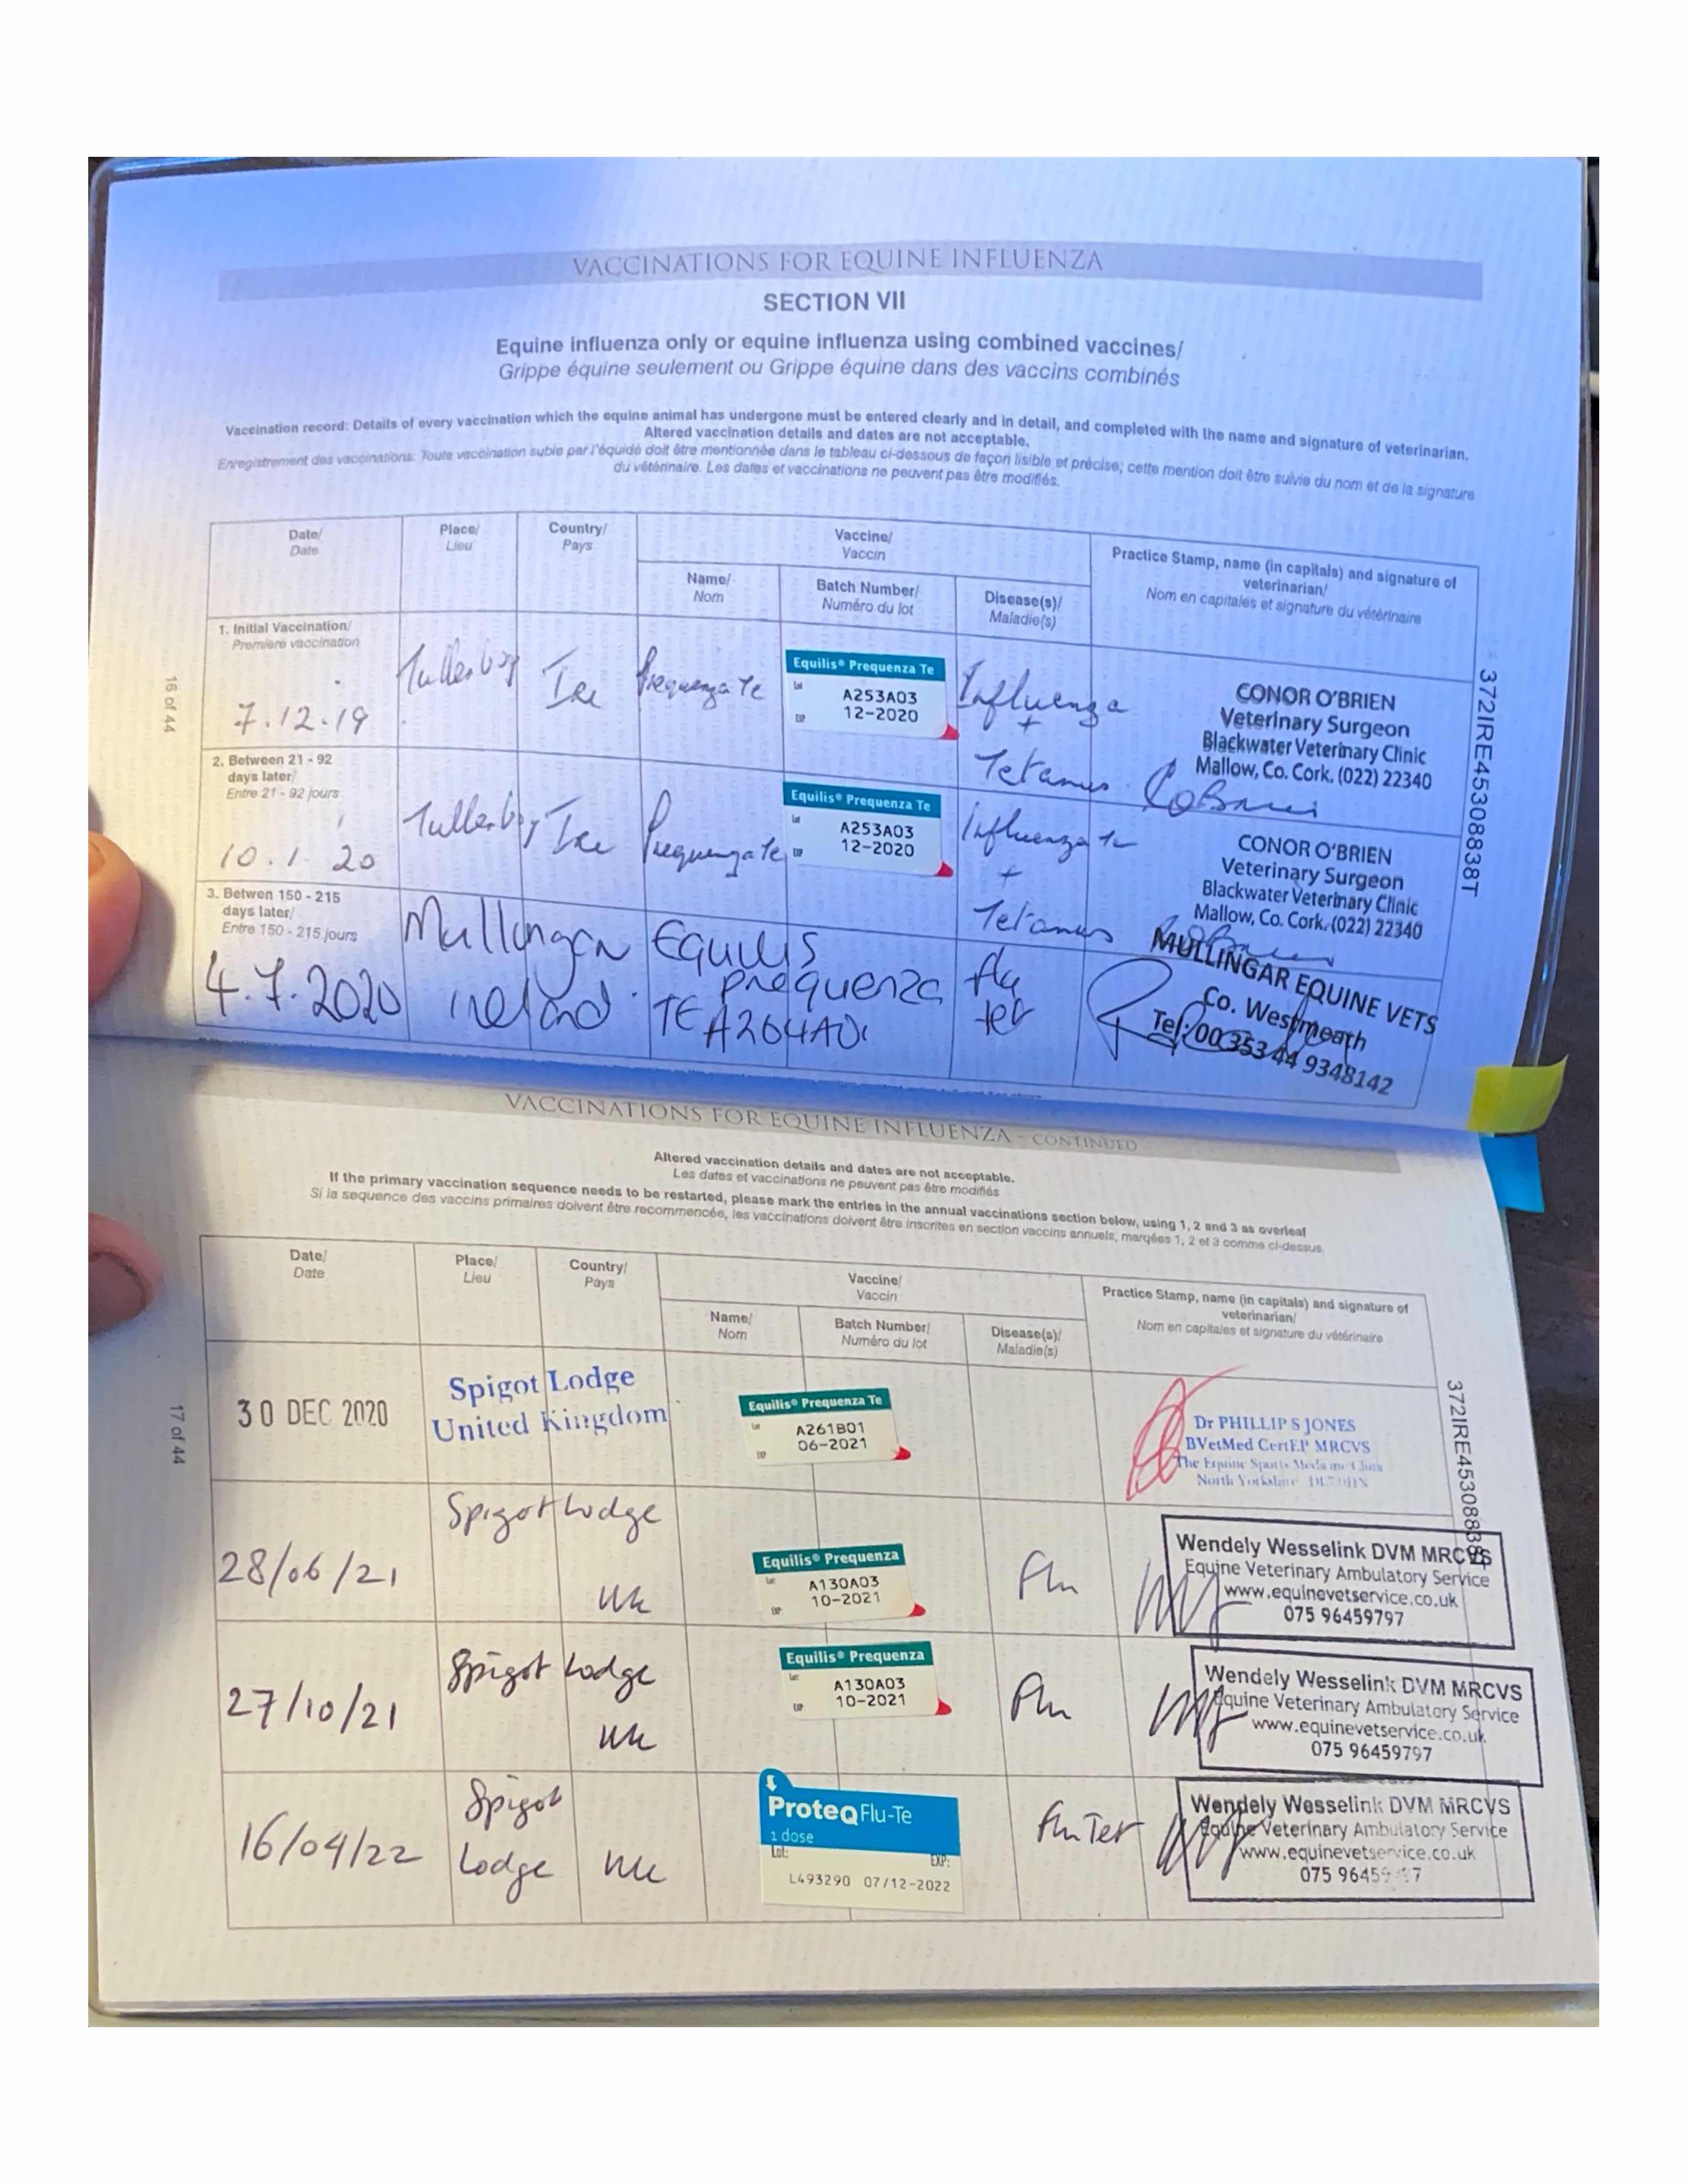 VACCINATIONS FOR EQUINE INFLUENZA
SECTION VII
Equine influenza only or equine influenza using combined vaccines/
Grippe équine seulement ou Grippe équine dans des vaccins combinés
Vaccination record: Details of every vaccination which the equine animal has undergone must be entered clearly and in detail, and completed with the name and signature of veterinarian.
Altered vaccination details and dates are not acceptable.
Enregistrement des vaccinations: Toute vaccination subie par l'équidé doit être mentionnée dans le tableau ci-dessous de façon lisible et précise; cette mention doit être suivie du nom et de la signature
du vétérinaire. Les dates et vaccinations ne peuvent pas être modifiés.
Date/
Date
Place/
Lieu
Country/
Pays
Vaccine/
Vaccin
Name/
Nom
Batch Number/
Numéro du lot
Disease(s)/
Maladie(s)
Practice Stamp, name (in capitals) and signature of
veterinarian/
Nom en capitales et signature du vétérinaire
1. Initial Vaccination/
Premiere vaccination
7.12.19
Ire
Prequenza Te
Equilis® Prequenza Te
Lot
A253A03
EXP
12-2020
Influenza
+
Tetanus
CONOR O'BRIEN
Veterinary Surgeon
Blackwater Veterinary Clinic
Mallow, Co. Cork. (022) 22340
2. Between 21 - 92
days later/
Entre 21 - 92 jours
10.1.20
Ire
Prequenza Te
Equilis® Prequenza Te
Lot
A253A03
EXP
12-2020
Influenza
+
Tetanus
CONOR O'BRIEN
Veterinary Surgeon
Blackwater Veterinary Clinic
Mallow, Co. Cork. (022) 22340
3. Betwen 150 - 215
days later/
Entre 150 - 215 jours
4.7.2020
Mullingar
Ireland
Equilis
prequenza
TE A264A01
flu
tet
MULLINGAR EQUINE VETS
Co. Westmeath
Tel: 00 353 44 9348142
16 of 44
372IRE45308838T
VACCINATIONS FOR EQUINE INFLUENZA - CONTINUED
Altered vaccination details and dates are not acceptable.
Les dates et vaccinations ne peuvent pas être modifiés
If the primary vaccination sequence needs to be restarted, please mark the entries in the annual vaccinations section below, using 1, 2 and 3 as overleaf
Si la sequence des vaccins primaires doivent être recommencée, les vaccinations doivent être inscrites en section vaccins annuels, marqées 1, 2 et 3 comme ci-dessus
Date/
Date
Place/
Lieu
Country/
Pays
Vaccine/
Vaccin
Name/
Nom
Batch Number/
Numéro du lot
Disease(s)/
Maladie(s)
Practice Stamp, name (in capitals) and signature of
veterinarian/
Nom en capitales et signature du vétérinaire
30 DEC 2020
Spigot Lodge
United Kingdom
Equilis® Prequenza Te
Lot
A261B01
EXP
06-2021
Dr PHILLIP S JONES
BVetMed CertEP MRCVS
The Equine Sports Medicine Clinic
North Yorkshire
28/06/21
Spigot Lodge
UK
Equilis® Prequenza
Lot
A130A03
EXP
10-2021
Flu
Wendely Wesselink DVM MRCVS
Equine Veterinary Ambulatory Service
www.equinevetservice.co.uk
075 96459797
27/10/21
Spigot Lodge
UK
Equilis® Prequenza
Lot
A130A03
EXP
10-2021
Flu
Wendely Wesselink DVM MRCVS
Equine Veterinary Ambulatory Service
www.equinevetservice.co.uk
075 96459797
16/04/22
Spigot
Lodge
UK
ProteqFlu-Te
1 dose
Lot:
EXP:
L493290 07/12-2022
Flu Tet
Wendely Wesselink DVM MRCVS
Equine Veterinary Ambulatory Service
www.equinevetservice.co.uk
17 of 44